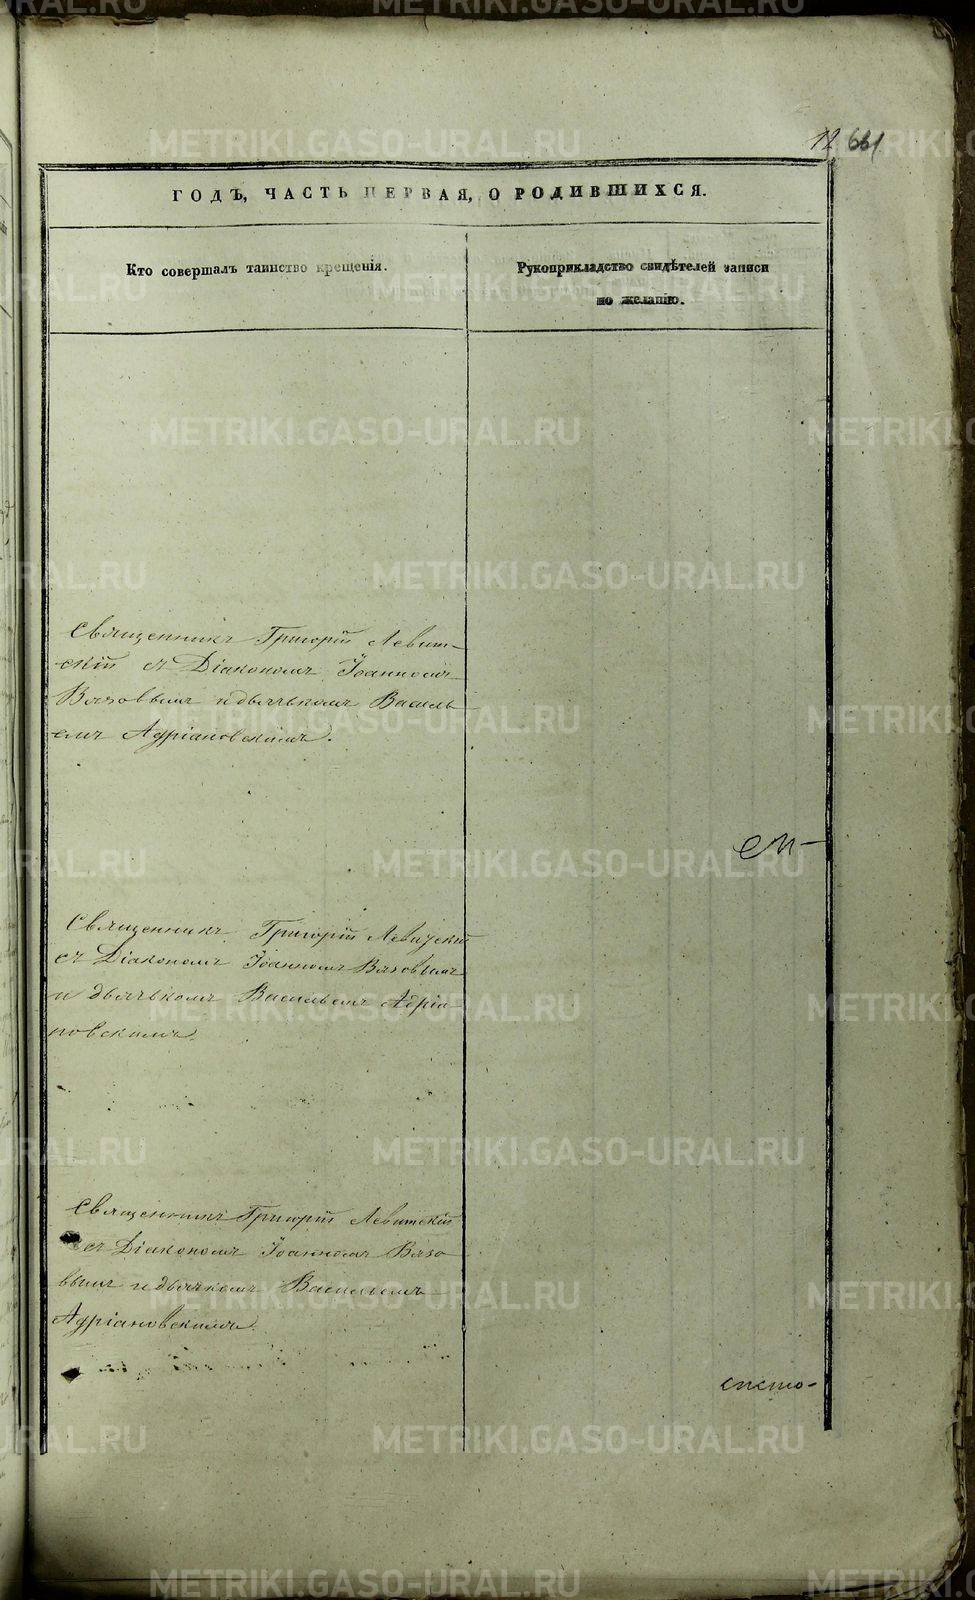 12 661
ГОДЪ, ЧАСТЬ ПЕРВАЯ, О РОДИВШИХСЯ.
Кто совершалъ таинство крещенія.
Рукоприкладство свидѣтелей записи
по желанію.
Священникъ Григорій Левит-
скій съ Діакономъ Іоанномъ
Вязовымъ и дьячькомъ Василь
емъ Адріановскимъ.
Священникъ Григорій Левицкій
съ Діакономъ Іоанномъ Вязовымъ
и дьячькомъ Васильемъ Адріа
новскимъ.
Священникъ Григорій Левитскій
съ Діакономъ Іоанномъ Вязо
вымъ и дьячкомъ Васильемъ
Адріановскимъ.
METRIKI.GASO-URAL.RU